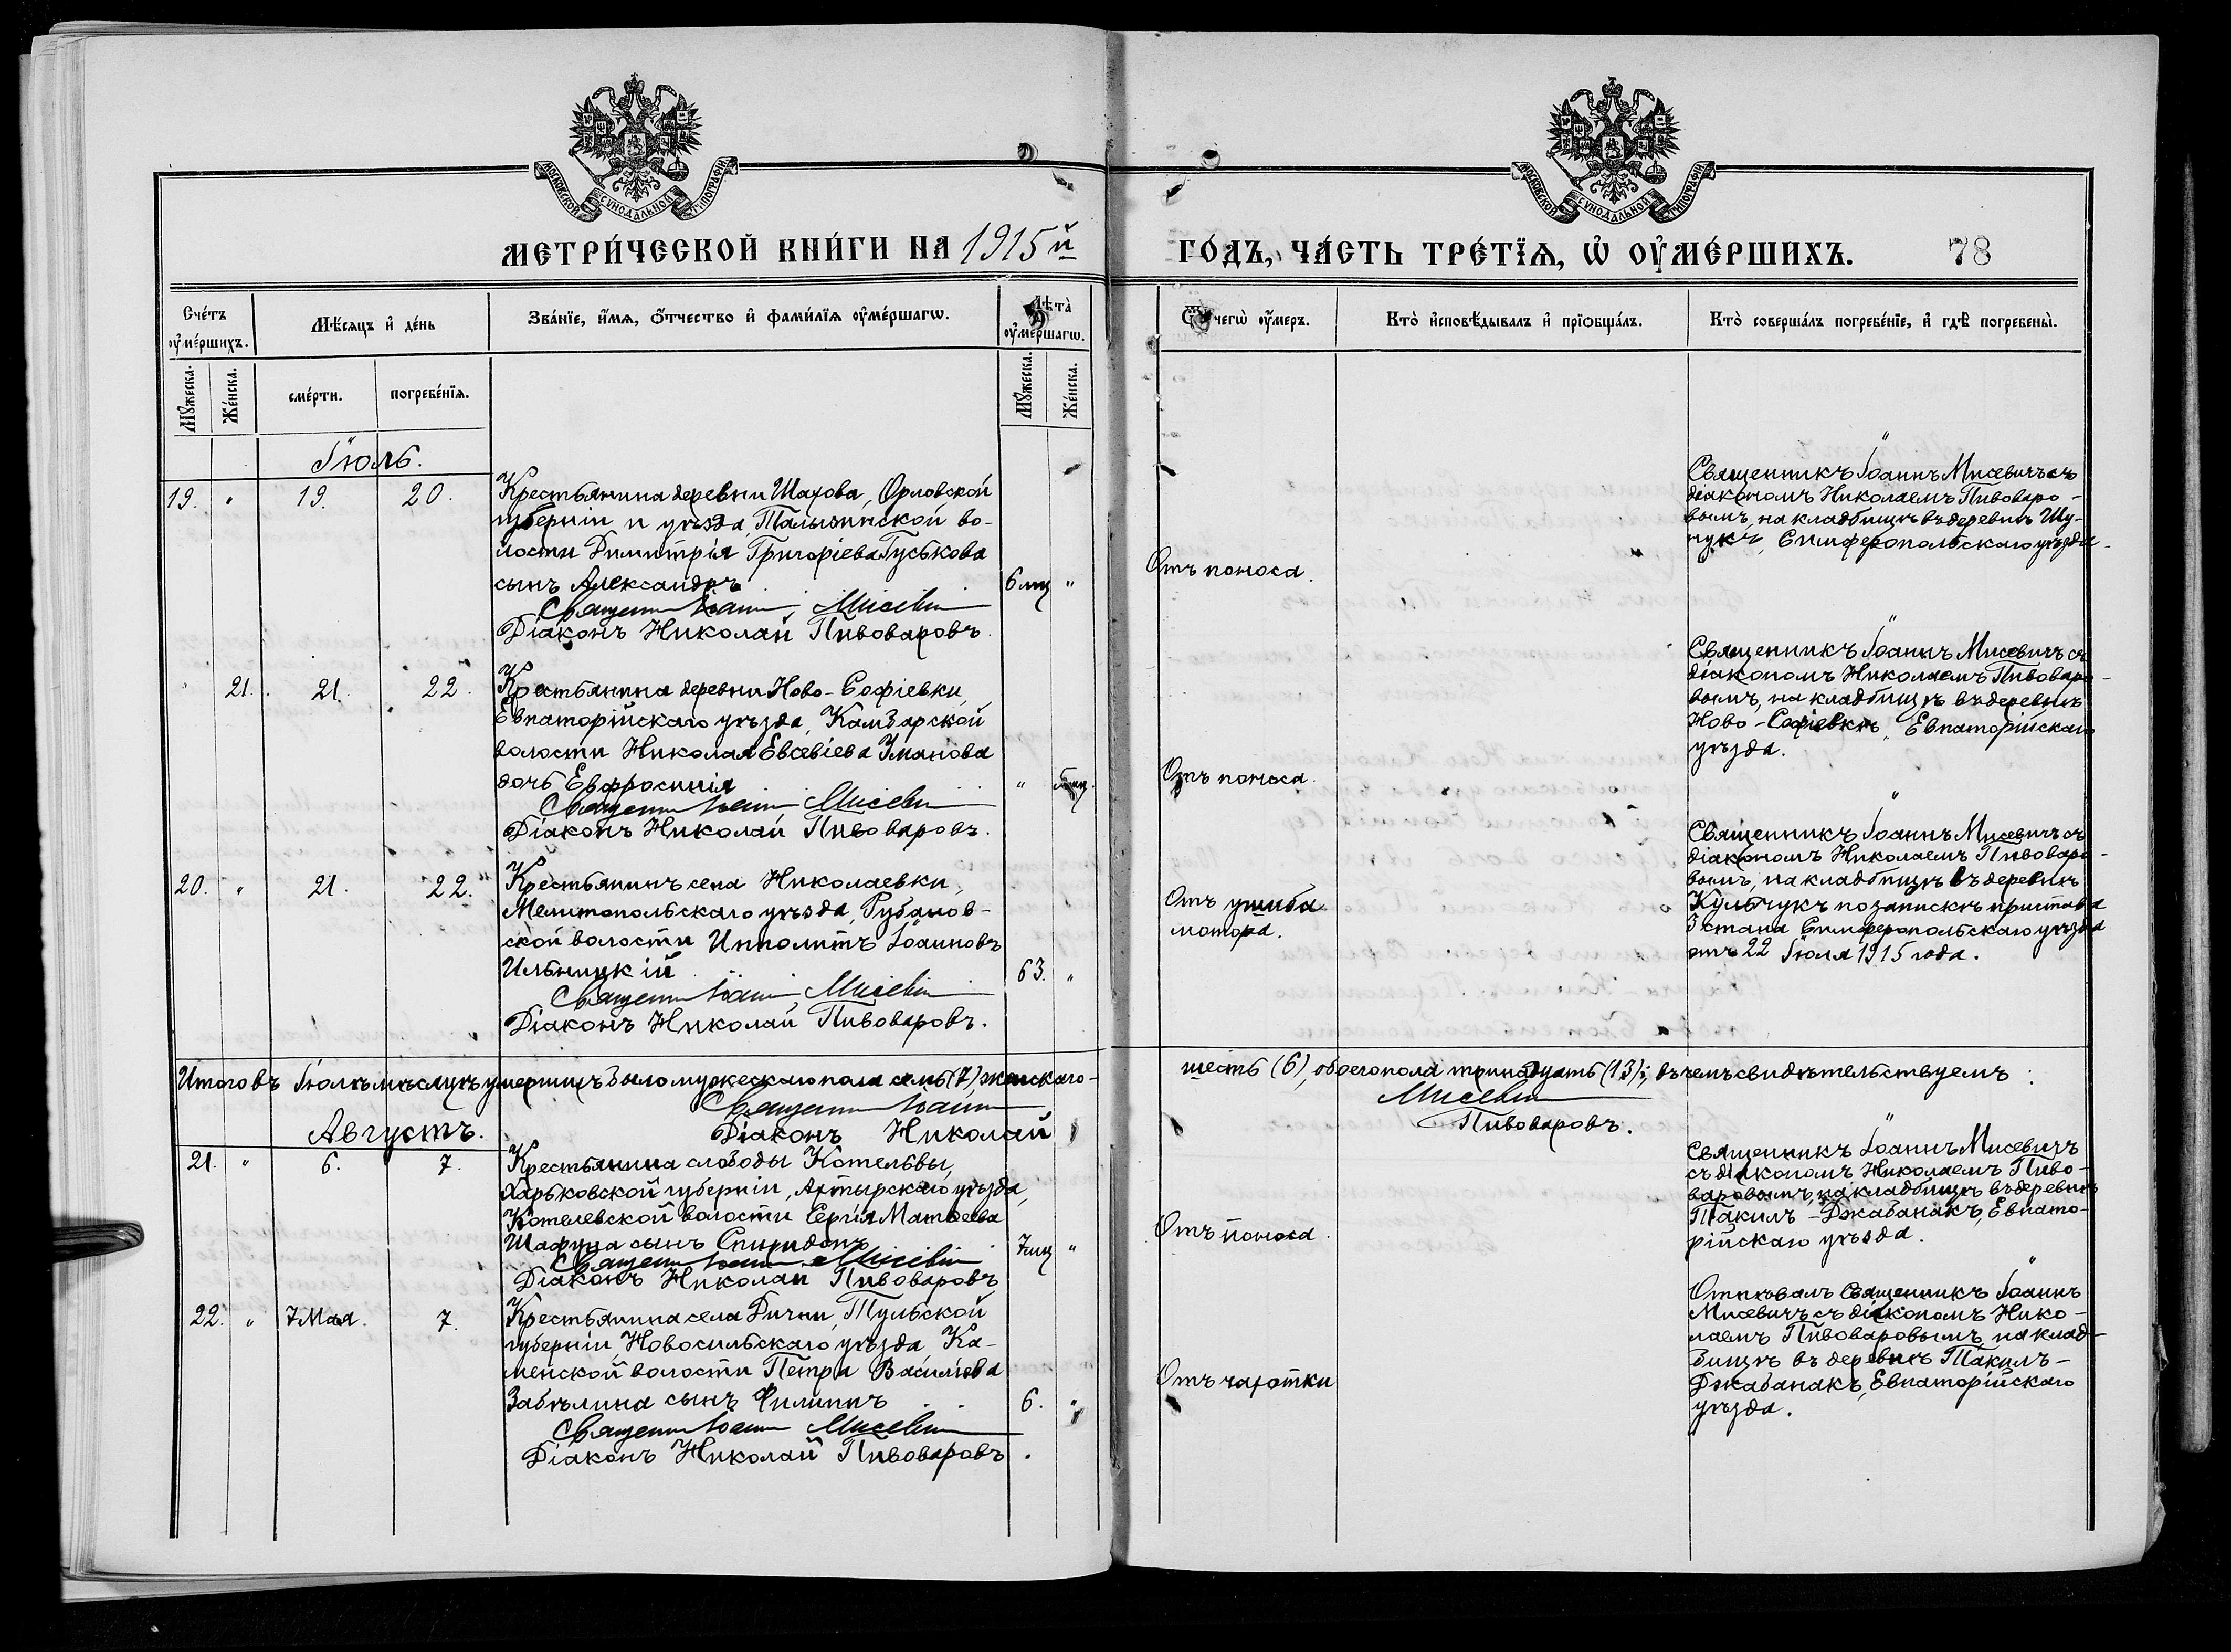 МОСКОВСКОЙ СѴНОДАЛЬНОЙ ТИПОГРАФІИ
МОСКОВСКОЙ СѴНОДАЛЬНОЙ ТИПОГРАФІИ
МЕТРИ́ЧЕСКОЙ КНИ́ГИ НА 1915й
ГО́ДЪ, ЧА́СТЬ ТРЕ́ТЇѦ, Ѡ҆ ОУ҆МЕ́РШИХЪ. 78
Сче́тъ оу҆ме́ршихъ.
Мѣ́сѧцъ и҆ де́нь
Зва́нїе, и҆́мѧ, ѻ҆́тчество и҆ фами́лїѧ оу҆ме́ршагѡ.
Лѣта̀ оу҆ме́ршагѡ.
Ѿ чегѡ̀ оу҆́меръ.
Кто̀ и҆сповѣ́дывалъ и҆ прїѻбща́лъ.
Кто̀ соверша́лъ погребе́нїе, и҆ гдѣ̀ погребены̀.
Мꙋ́жеска.
Же́нска.
сме́рти.
погребе́нїѧ.
Мꙋ́жеска.
Же́нска.
Іюль.
19. " 19. 20.
Крестьянина деревни Шахова, Орловской
губерніи и уѣзда, Талызинской во-
лости Димитрія Григоріева Гуськова
сынъ Александръ 6 мц "
Священникъ Іоаннъ Мисевичъ
Діаконъ Николай Пивоваровъ.
Отъ поноса.
Священникъ Іоаннъ Мисевичъ съ
діакономъ Николаемъ Пивоваро-
вымъ, на кладбищѣ въ деревнѣ
Симферопольскаго уѣзда.
" 21. 21. 22.
Крестьянина деревни Ново-Софіевки,
Евпаторійскаго уѣзда, Камбарской
волости Николая Евсевіева Уманова
дочь Евфросинія "
Священникъ Іоаннъ Мисевичъ
Діаконъ Николай Пивоваровъ.
Отъ поноса.
Священникъ Іоаннъ Мисевичъ съ
діакономъ Николаемъ Пивоваро-
вымъ, на кладбищѣ въ деревнѣ
Ново-Софіевкѣ, Евпаторійскаго
уѣзда.
20. " 21. 22.
Крестьянинъ села Николаевки,
Мелитопольскаго уѣзда, Рубанов-
ской волости Ипполитъ Іоанновъ
Ильницкій 63. "
Священникъ Іоаннъ Мисевичъ
Діаконъ Николай Пивоваровъ.
Отъ ушиба
мотора.
Священникъ Іоаннъ Мисевичъ съ
діакономъ Николаемъ Пивоваро-
вымъ, на кладбищѣ въ деревнѣ
Кульчукъ по запискѣ пристава
3 стана Симферопольскаго уѣзда
отъ 22 Іюля 1915 года.
Итого въ Іюлѣ мѣсяцѣ умершихъ было мужескаго пола семь (7) женскаго-
шесть (6), обоего пола тринадцать (13); въ чемъ свидѣтельствуемъ:
Священникъ Іоаннъ Мисевичъ
Діаконъ Николай Пивоваровъ.
Августъ.
21. " 6. 7.
Крестьянина слободы Котельвы,
Харьковской губерніи, Ахтырскаго уѣзда,
Котелевской волости Сергія Матѳеева
Шафуна сынъ Спиридонъ 7 мц "
Священникъ Іоаннъ Мисевичъ
Діаконъ Николай Пивоваровъ
Отъ поноса.
Священникъ Іоаннъ Мисевичъ
съ діакономъ Николаемъ Пиво-
варовымъ, на кладбищѣ въ деревнѣ
Такилъ-Джабанакъ, Евпато-
рійскаго уѣзда.
22. " 7 Мая. 7.
Крестьянина села Дични, Тульской
губерніи, Новосильскаго уѣзда, Ка-
менской волости Петра Васильева
Забѣлина сынъ Филиппъ 6. "
Священникъ Іоаннъ Мисевичъ
Діаконъ Николай Пивоваровъ.
Отъ чахотки
Отпѣвалъ Священникъ Іоаннъ
Мисевичъ съ діакономъ Нико-
лаемъ Пивоваровымъ, на клад-
бищѣ въ деревнѣ Такилъ-
Джабанакъ, Евпаторійскаго
уѣзда.